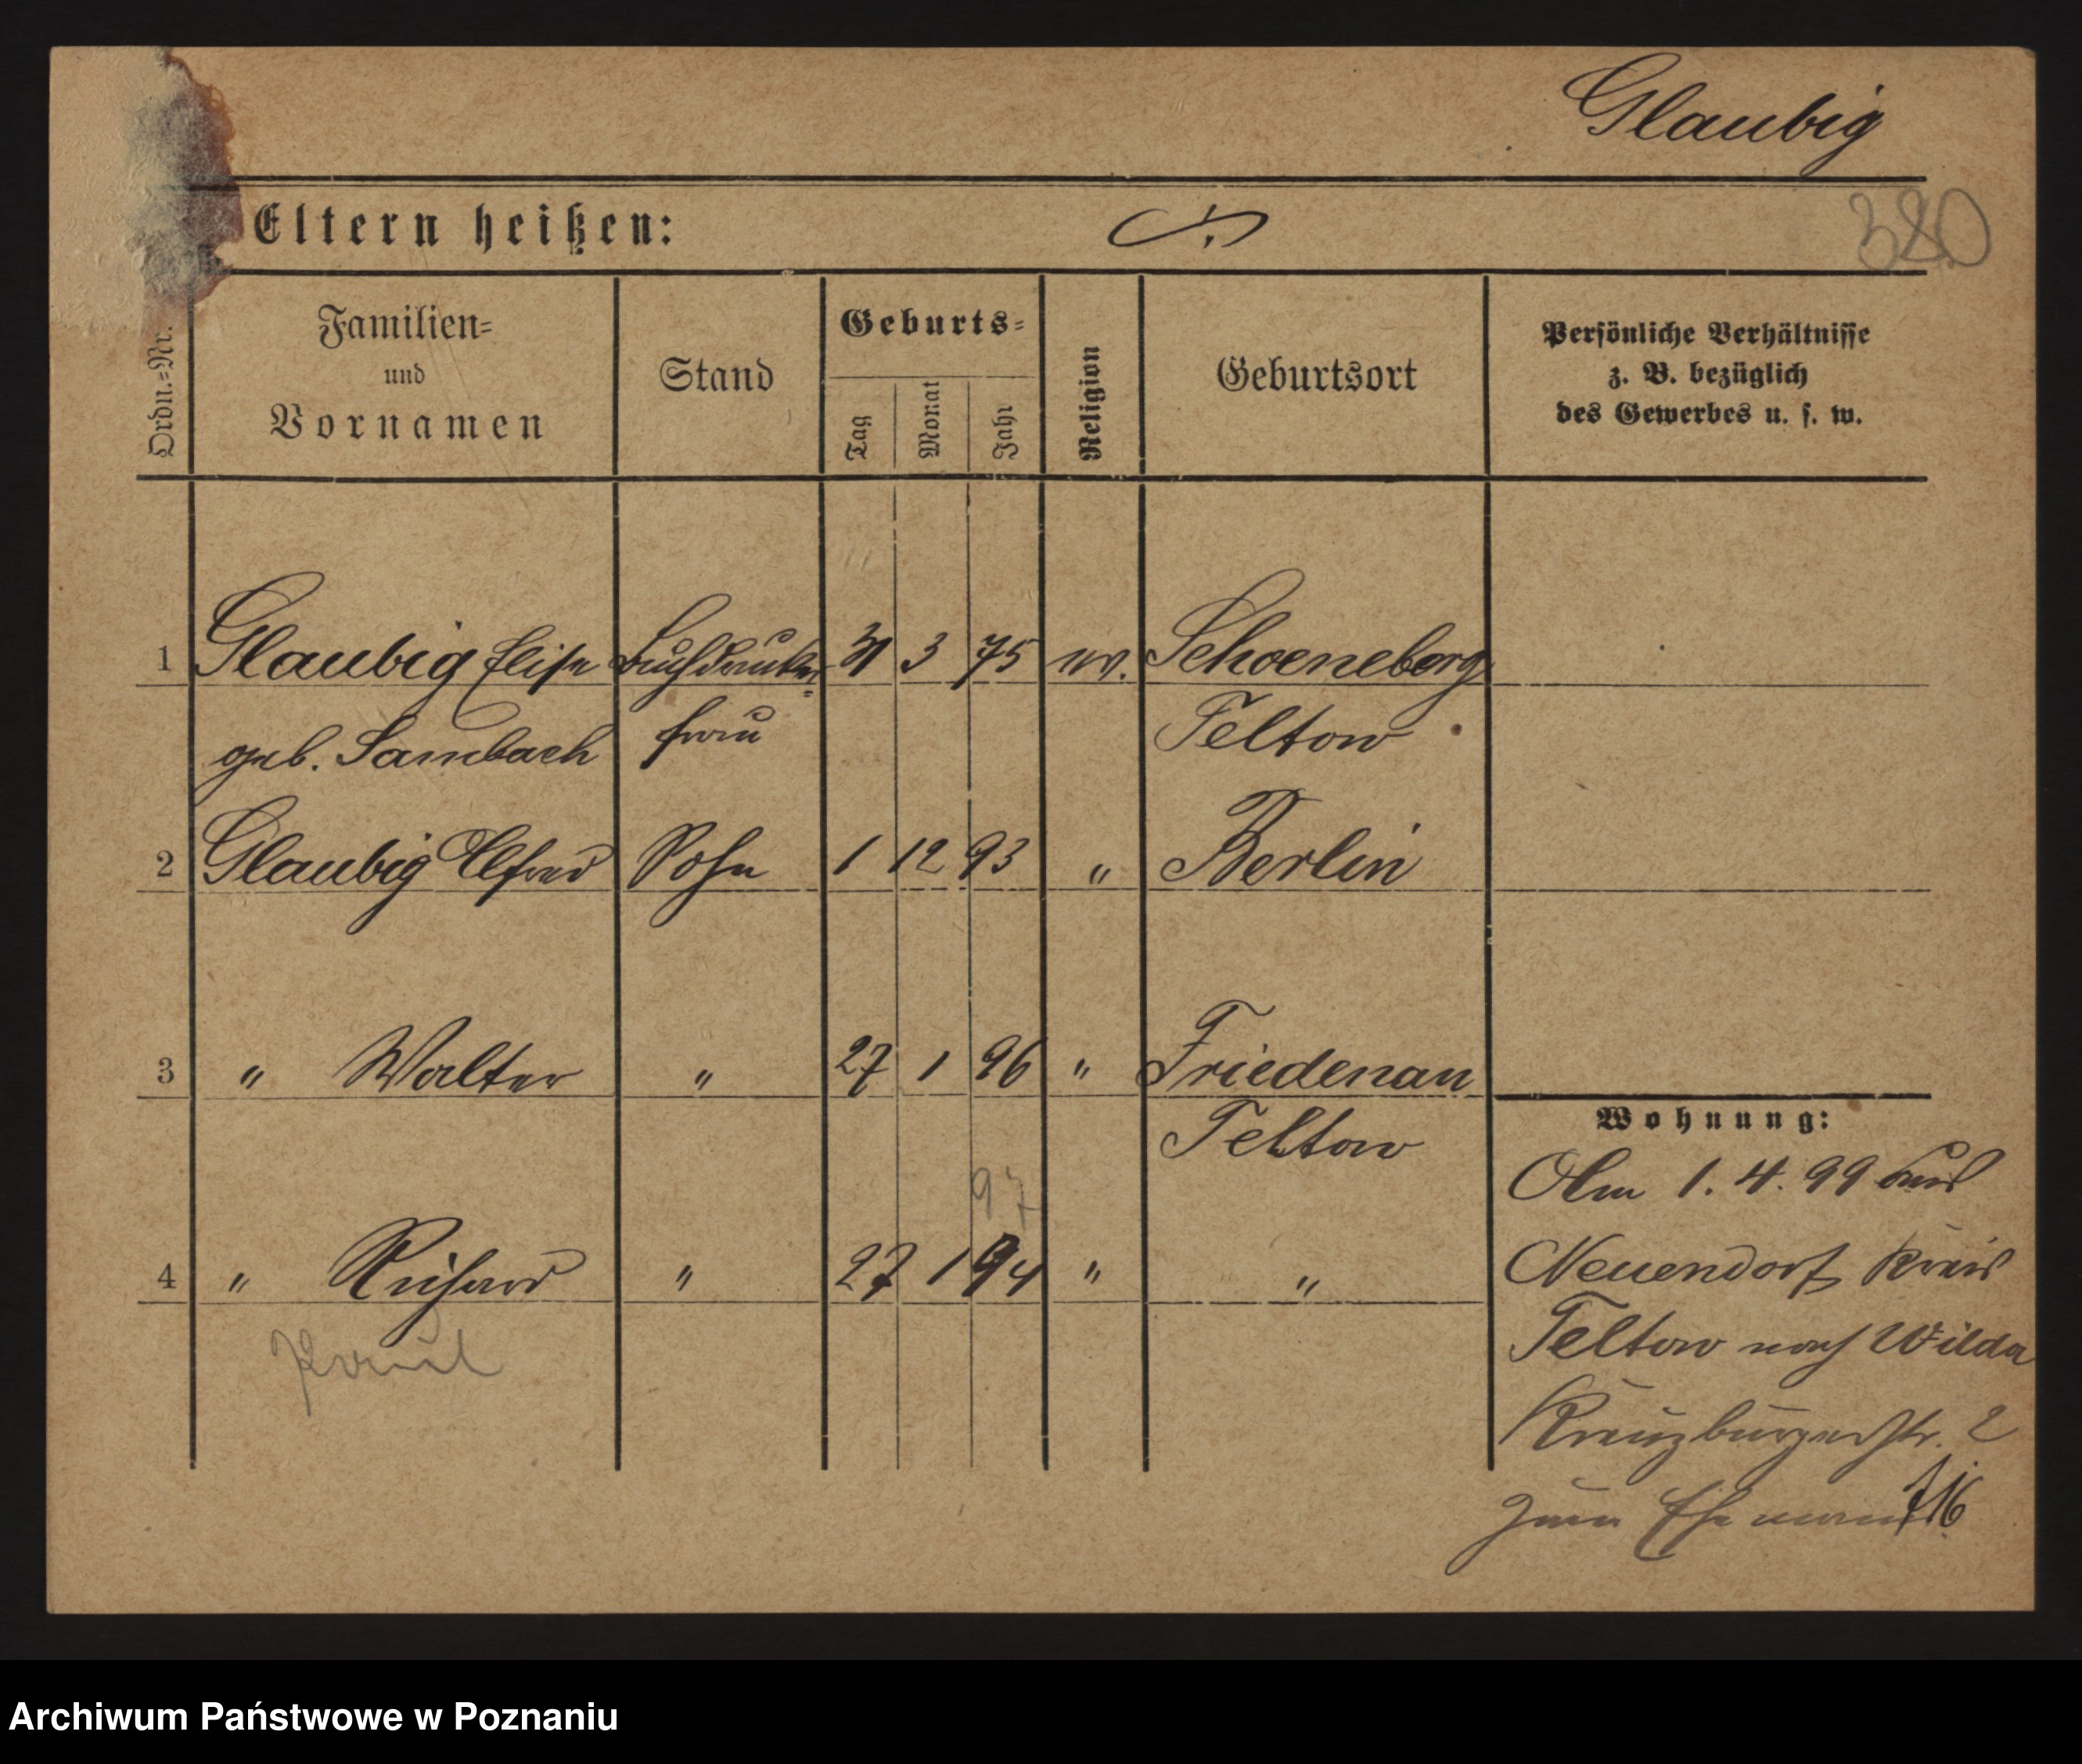 Glaubig
380
Eltern heißen:
Ordn.=Nr.
Familien= und Vornamen
Stand
Geburts=
Tag
Monat
Jahr
Religion
Geburtsort
Persönliche Verhältnisse
z. B. bezüglich
des Gewerbes u. s. w.
1 Glaubig Elise Buchdrucker= 31 3 75 ev. Schoeneberg
geb. Sambach frau Teltow
2 Glaubig Alfred Sohn 1 12 93 " Berlin
3 " Walter " 27 1 96 " Friedenau
Teltow
97
4 " Richard " 27 1 94 " "
Paul
Wohnung:
Am 1. 4. 99 aus
Neuendorf Kreis
Teltow nach Wilda
Kreuzburgerstr. 2
zum Ehemann
Archiwum Państwowe w Poznaniu